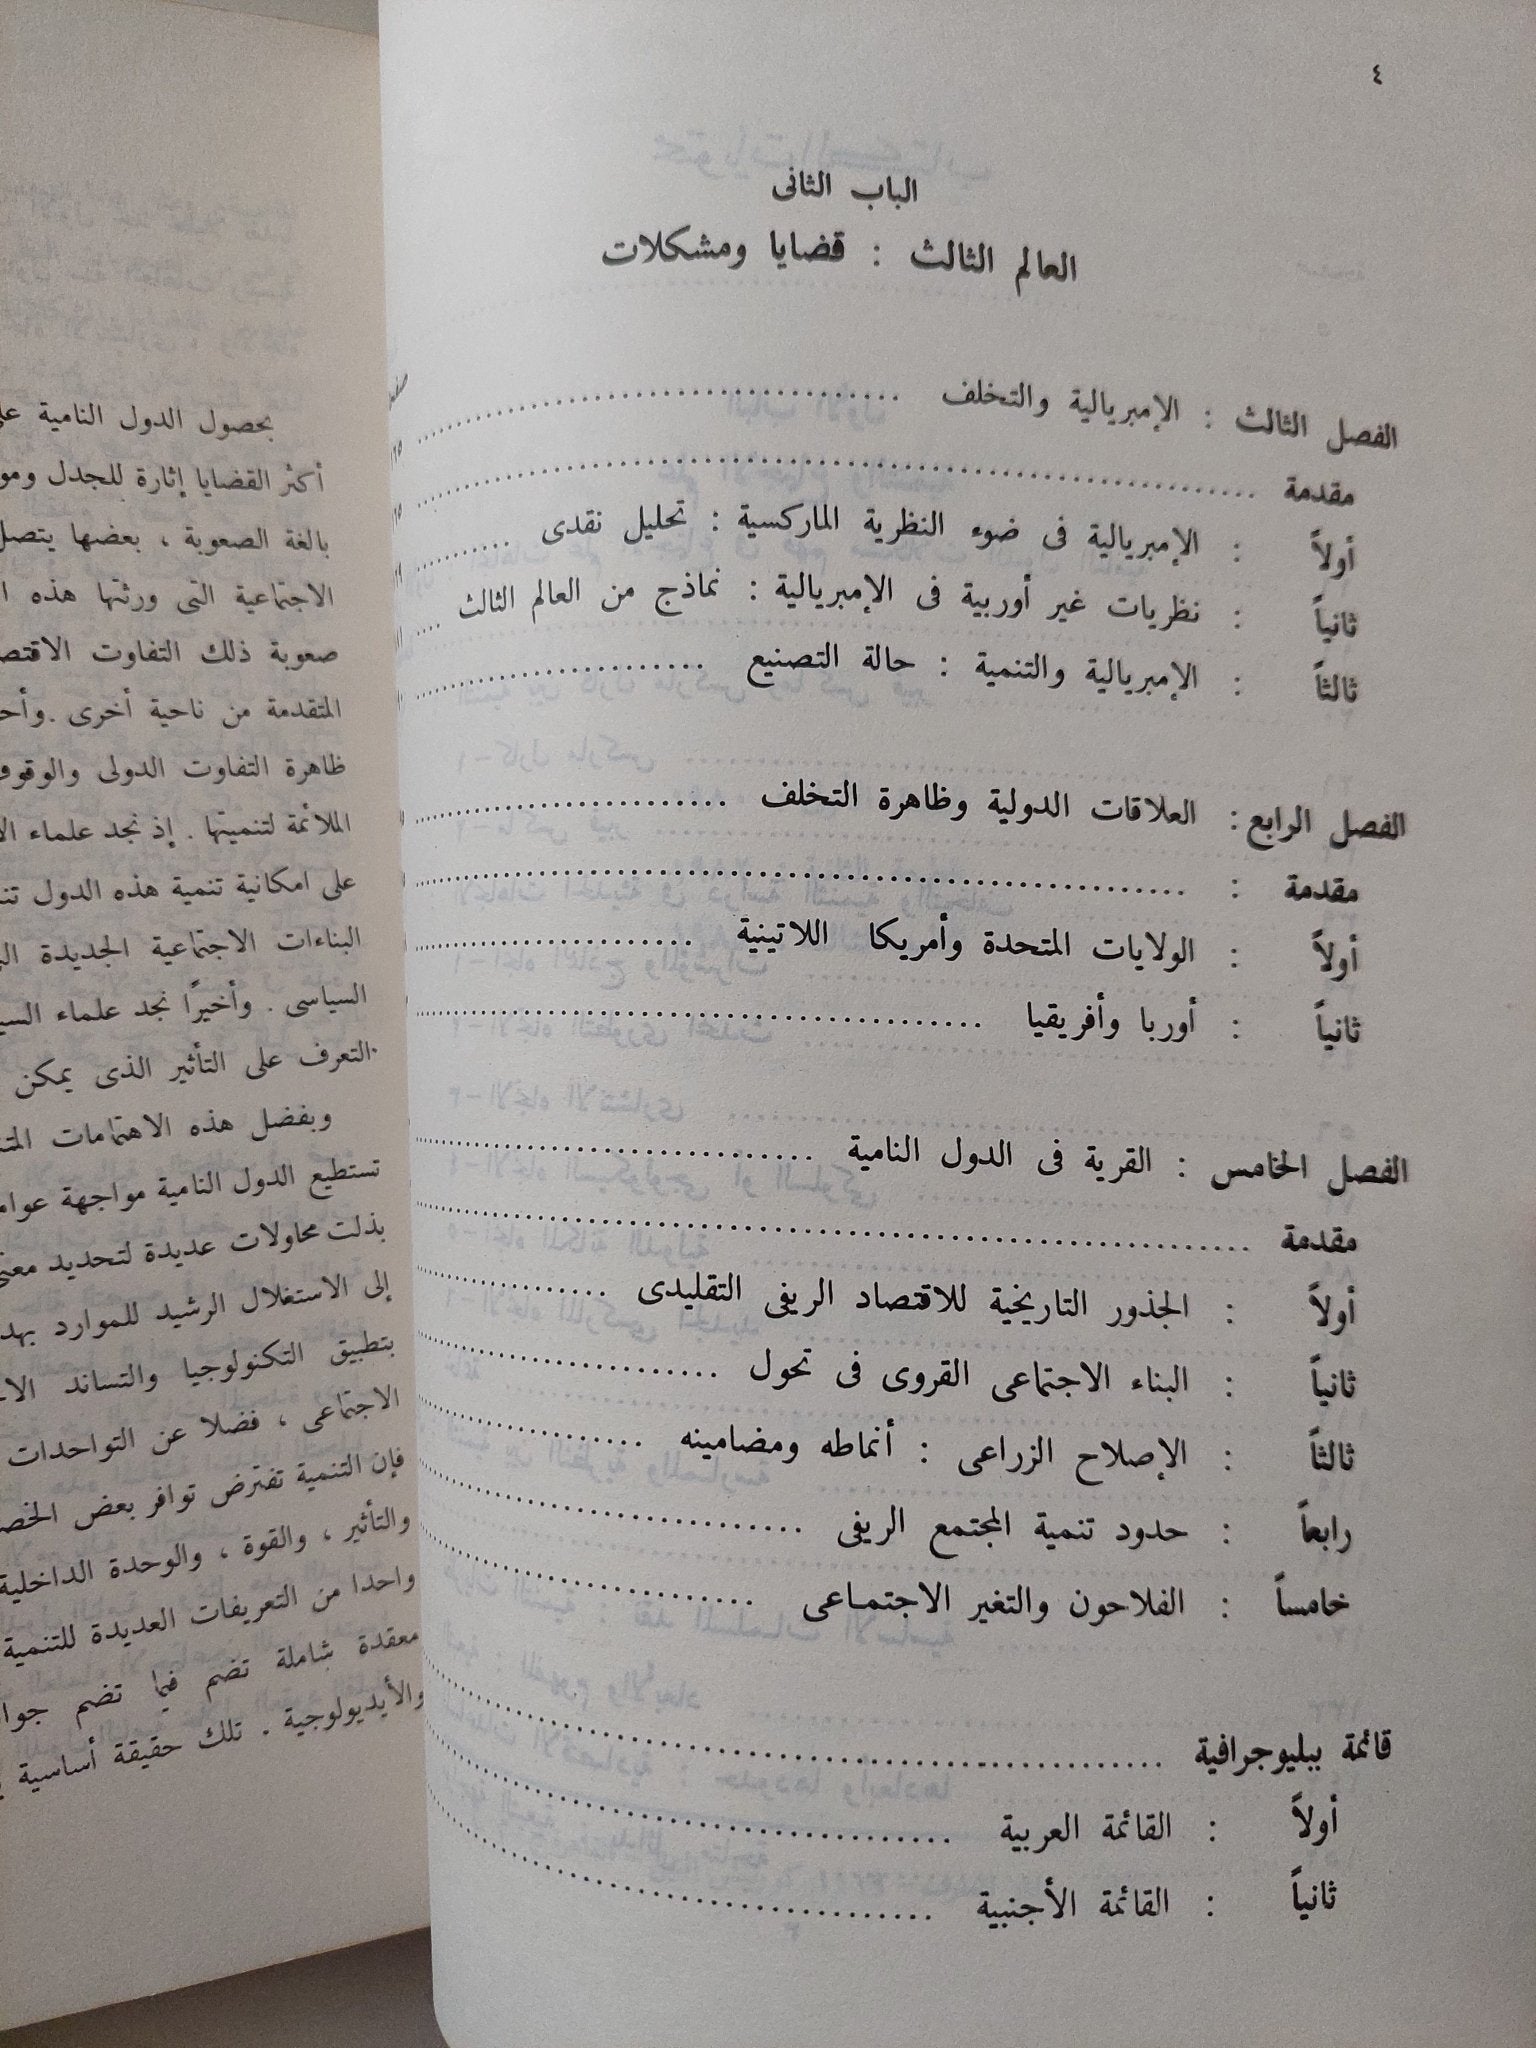 ٤
الباب الثانى
العالم الثالث : قضايا ومشكلات
الفصل الثالث : الإمبريالية والتخلف ..............................
مقدمة ..............................
أولاً : الإمبريالية فى ضوء النظرية الماركسية : تحليل نقدى ........
ثانياً : نظريات غير أوربية فى الإمبريالية : نماذج من العالم الثالث ....
ثالثاً : الإمبريالية والتنمية : حالة التصنيع ....................
الفصل الرابع : العلاقات الدولية وظاهرة التخلف ....................
مقدمة : ..............................
أولاً : الولايات المتحدة وأمريكا اللاتينية ....................
ثانياً : أوربا وأفريقيا ..............................
الفصل الخامس : القرية فى الدول النامية ..............................
مقدمة ..............................
أولاً : الجذور التاريخية للاقتصاد الريفى التقليدى ..............
ثانياً : البناء الاجتماعى القروى فى تحول ....................
ثالثاً : الإصلاح الزراعى : أنماطه ومضامينه ....................
رابعاً : حدود تنمية المجتمع الريفى ....................
خامساً : الفلاحون والتغير الاجتماعى ....................
قائمة ببليوجرافية ..............................
أولاً : القائمة العربية ..............................
ثانياً : القائمة الأجنبية ..............................
بحصول الدول النامية
أكثر القضايا إثارة للجدل
بالغة الصعوبة ، بعضها يتصل
الاجتماعية التى ورثتها هذه
صعوبة ذلك التفاوت
المتقدمة من ناحية أخرى .
ظاهرة التفاوت الدولى
الملائمة لتنميتها . إذ نجد علماء
على امكانية تنمية هذه الدول
البناءات الاجتماعية الجديدة
السياسى . وأخيرًا نجد علماء
التعرف على التأثير الذى يمكن
وبفضل هذه الاهتمامات
تستطيع الدول النامية مواجهة
بذلت محاولات عديدة لتحديد
إلى الاستغلال الرشيد للموارد
بتطبيق التكنولوجيا والتساند
الاجتماعى ، فضلا عن التواحدات
فإن التنمية تفترض توافر بعض
والتأثير ، والقوة ، والوحدة الداخلية
واحدا من التعريفات العديدة للتنمية
معقدة شاملة تضم فيما تضم
والأيديولوجية . تلك حقيقة أساسية